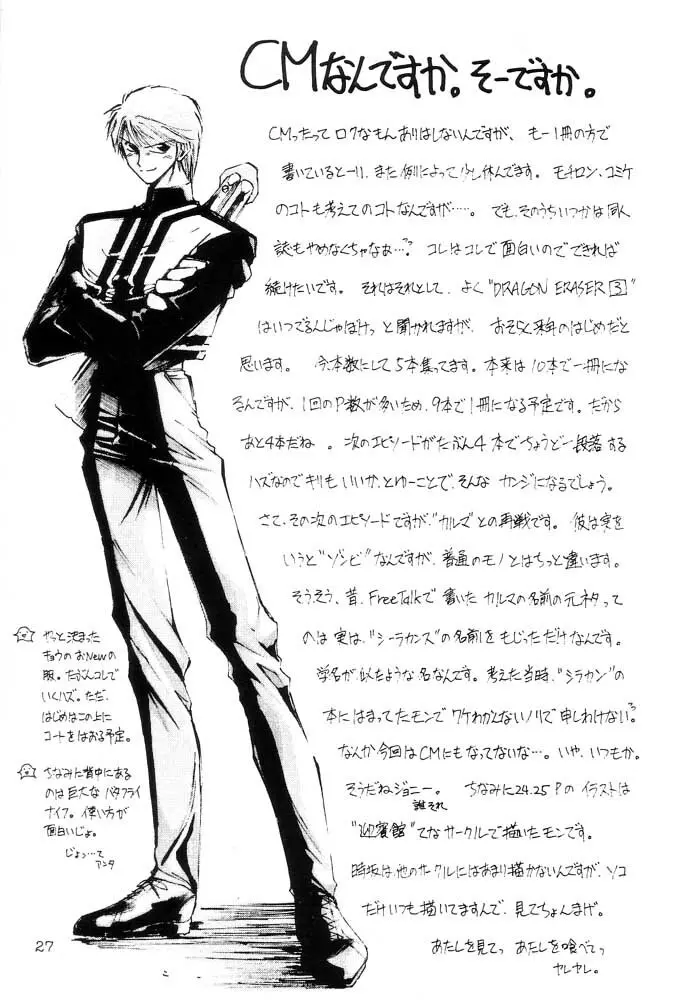 CMなんですか。そーですか。
CMったって ロクなもんありはしないんですが、もー1冊の方で
書いているとーり、また例によって少し休んでます。モチロン、コミケ
のコトも考えてのコトなんですが……。でも、そのうちいつかは同人
誌もやめなくちゃなぁ…?コレはコレで面白いのでできれば
続けたいです。それはそれとして、よく"DRAGON ERASER 3"
はいつでるんじゃぼけっ と聞かれますが、おそらく来年のはじめだと
思います。今、本数にして5本集ってます。本来は10本で一冊にな
るんですが、1回のP数が多いため、9本で1冊になる予定です。だから
あと4本だね。次のエピソードがたぶん4本でちょうど一段落する
ハズなのでキリもいいか、とゆーことで、そんな カンジになるでしょう。
さて、その次のエピソードですが、"カルマ"との再戦です。彼は実を
いうと"ゾンビ"なんですが、普通のモノとはちっと違います。
そうそう、昔、FreeTalkで書いたカルマの名前の元ネタって
のは実は、"シーラカンス"の名前をもじっただけなんです。
学名が似たような名なんです。考えた当時、"シラカン"の
本にはまってたモンでワケわかんないノリで申しわけない?
なんか今回はCMにもなってないな…。いや、いつもか。
そうだねジョニー。ちなみに24.25Pのイラストは
誰それ
"迎賓館"てなサークルで描いたモンです。
時坂は、他のサークルにはあまり描かないんですが、ソコ
だけいつも描いてますんで、見てちょんまげ。
あたしを見てっ あたしを喰べてっ
ヤレヤレ。
やっと決まった
キョウのおNewの
服。たぶんコレで
いくハズ。ただ、
はじめはこの上に
コートをはおる予定。
ちなみに背中にある
のは巨大なバタフライ
ナイフ。使い方が
面白いじょ。
じょっ…て
アンタ
27